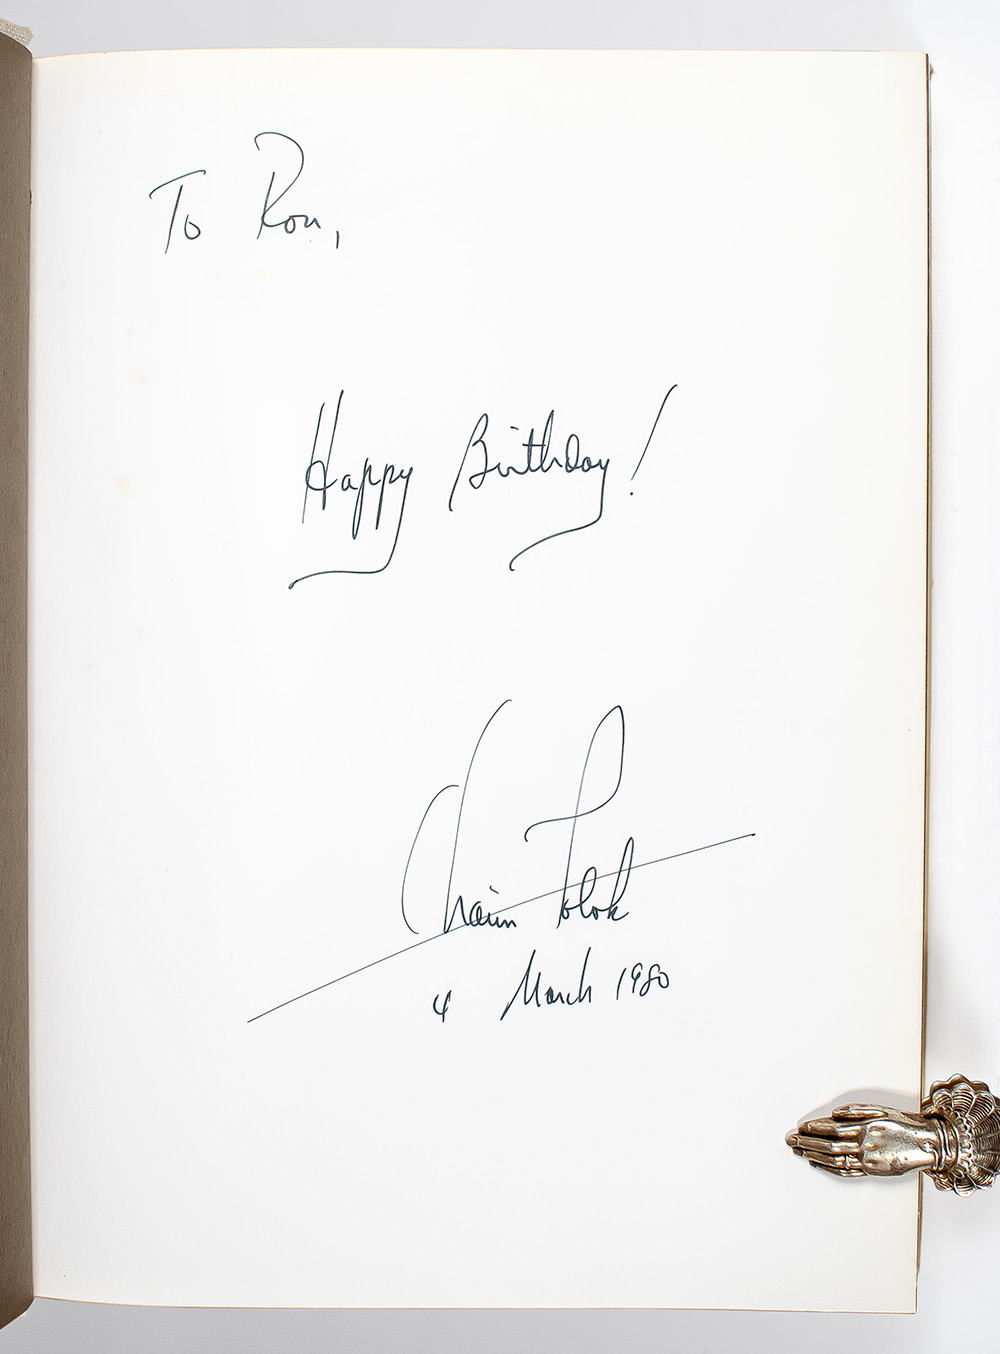 To Ron,
Happy Birthday!
Chaim Potok
4 March 1980